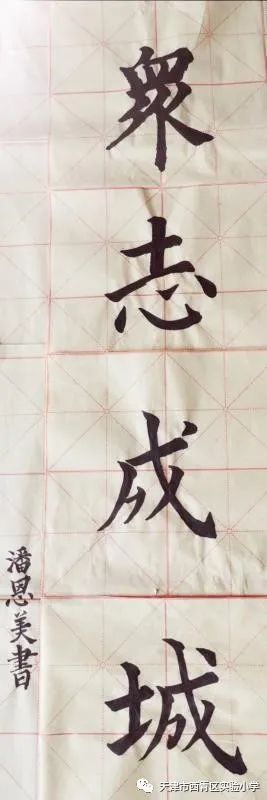 眾志成城
潘恩美書
天津市西青区实验小学